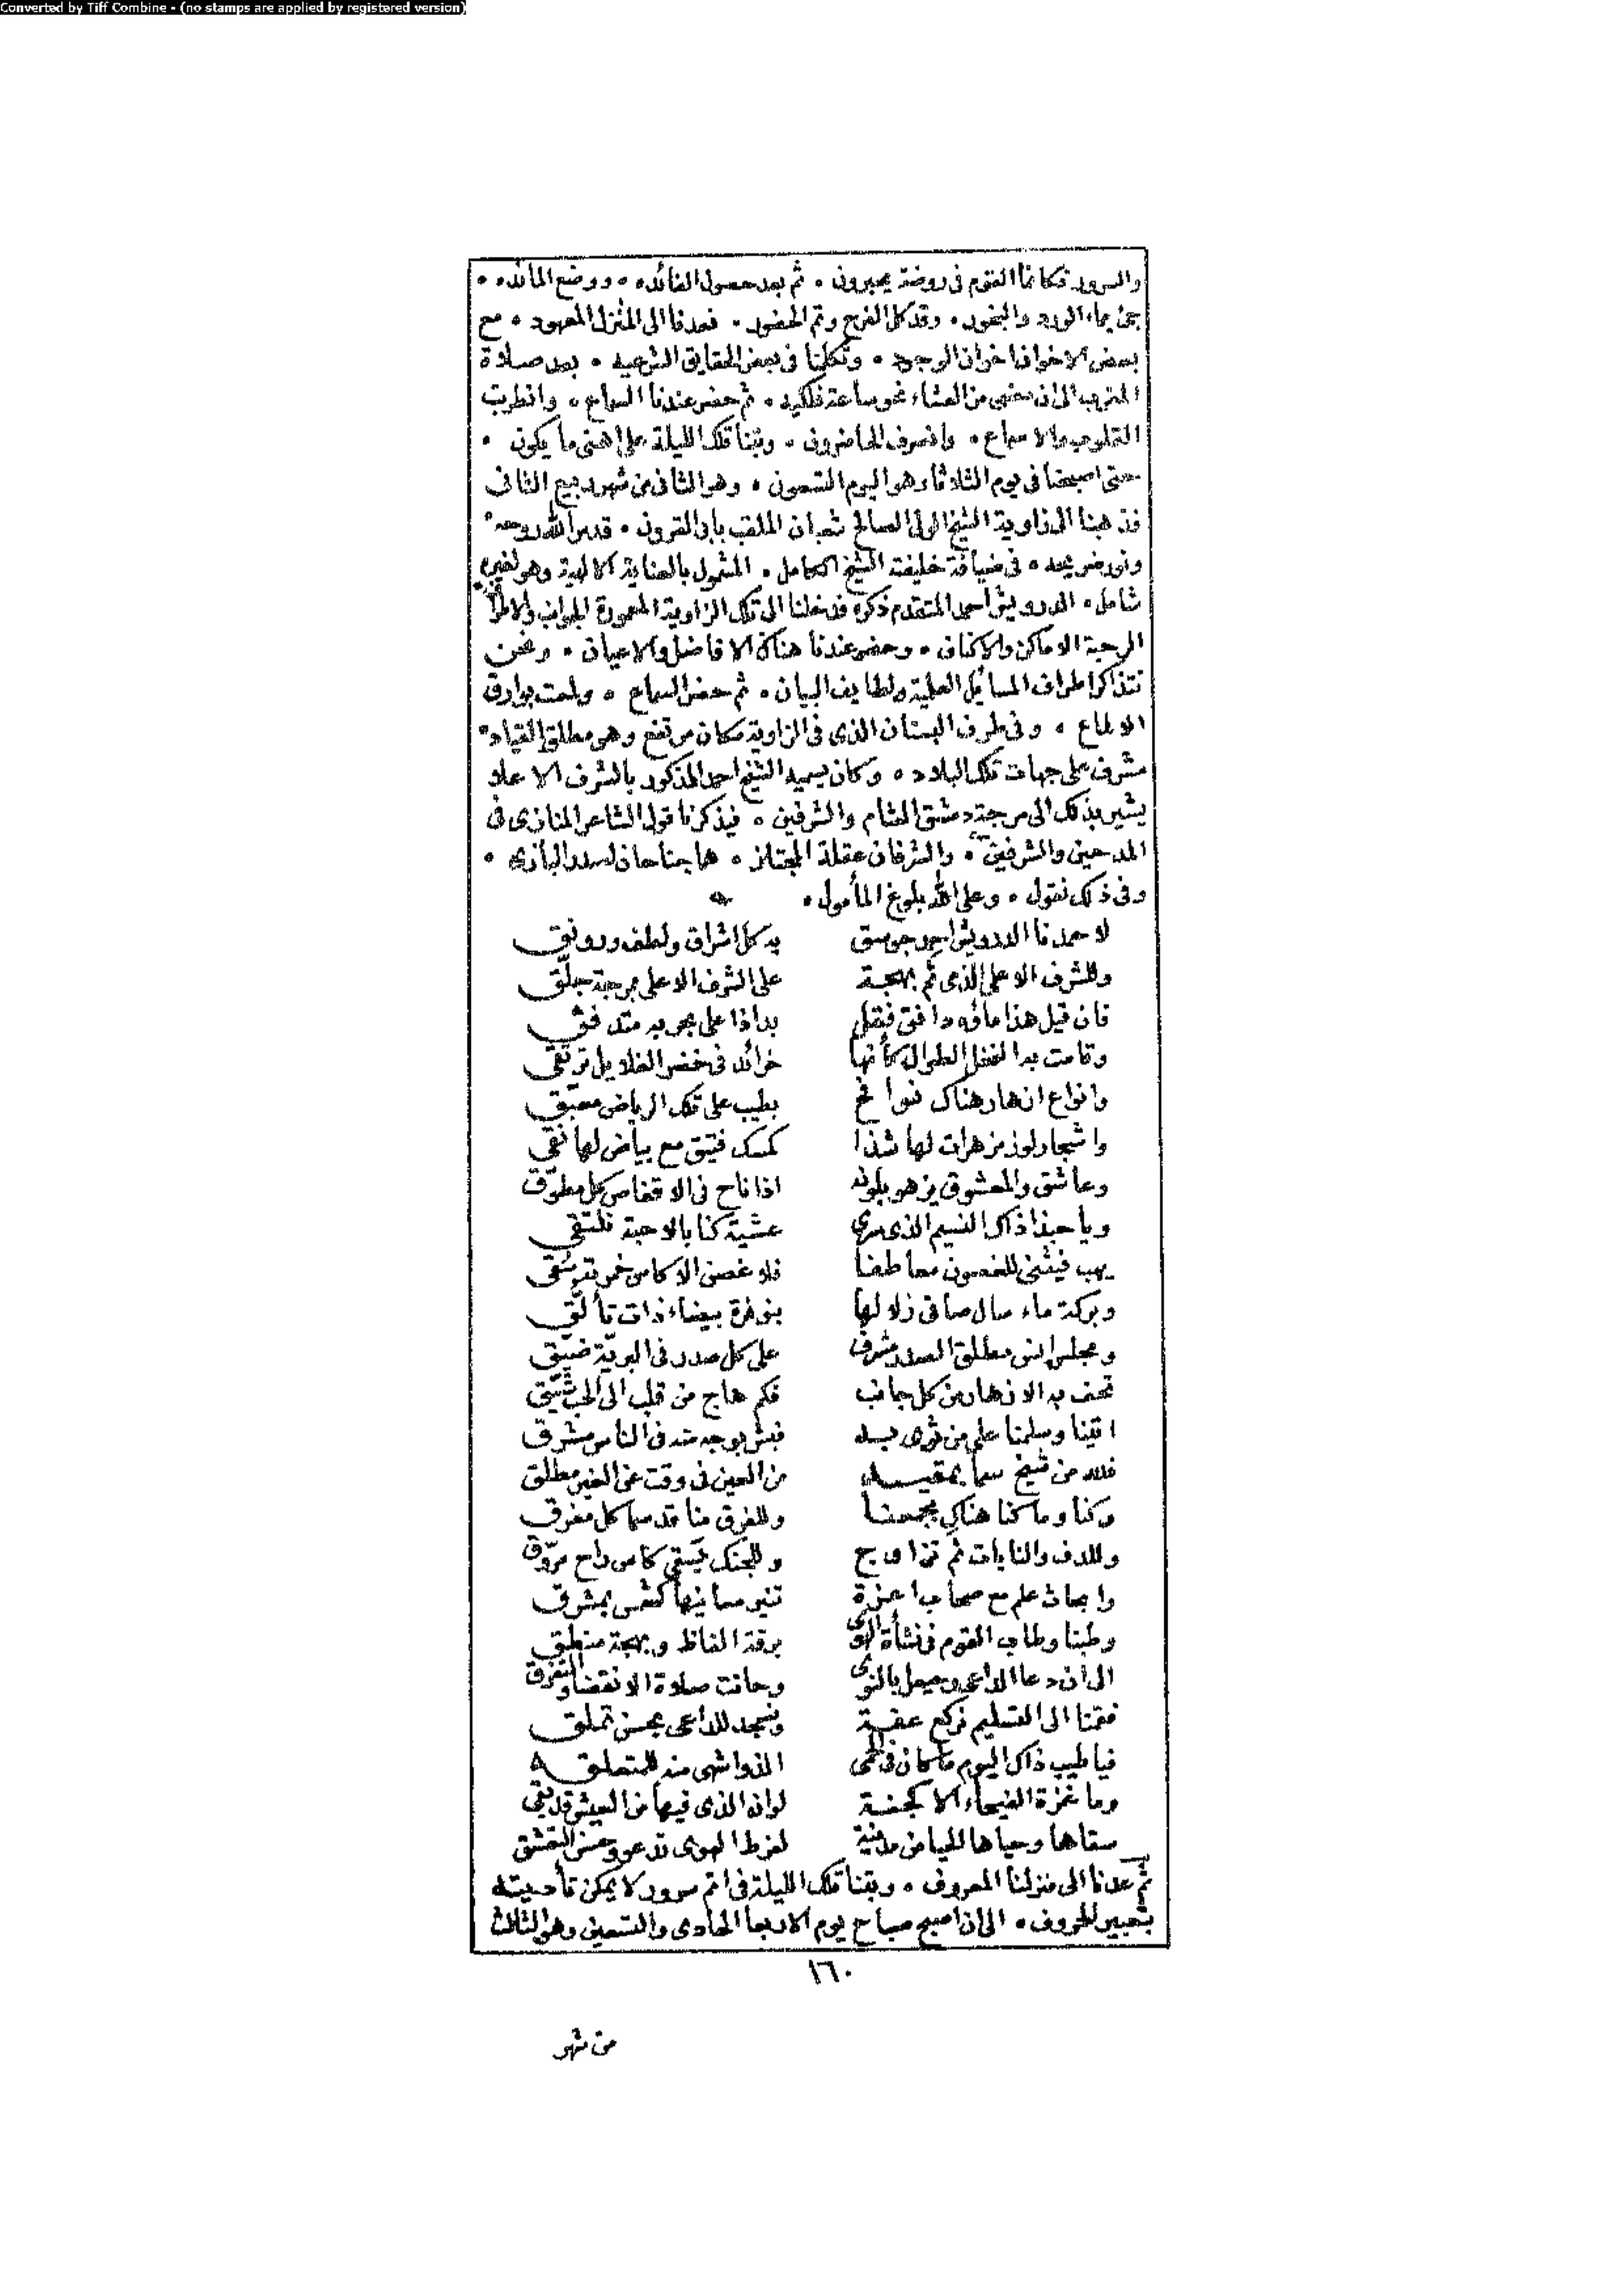 Converted by Tiff Combine - (no stamps are applied by registered version)
والسرور فكانما القوم في روضة يحبرون ٠ ثم بعد حصول الفائده ٠ ووضع المائده ٠
جئ بماء الورد والبخور ٠ وقد كمل الفرح وتم الحضور ٠ فعدنا الى المنزل المعهود ٠ مع
بعض الاخوان اخوان الوجود ٠ وتكلمنا في بعض الحقايق الشرعيه ٠ بعد صلاة
المغرب الى ان مضى من العشاء نحو ساعة فلكيه ٠ ثم حضر عندنا السماع ٠ واطربت
القلوب والاسماع ٠ وانصرف الحاضرون ٠ وبتنا تلك الليلة على اهنى ما يكون ٠
حتى اصبحنا في يوم الثلاثا وهو اليوم التسعون ٠ وهو الثاني من شهر ربيع الثاني
فذهبنا الى زاوية الشيخ الولي الصالح شعبان الملقب بابي القرون ٠ قدس الله روحه
ونور ضريحه ٠ في ضيافة خليفته الشيخ الكامل ٠ المشمول بالعناية الالهية وهو لغيره
شامل ٠ الدرويش احمد المتقدم ذكره فدخلنا الى تلك الزاوية المعمورة الجوانب والاطراف
الرحبة الاماكن والاكناف ٠ وحضر عندنا هناك الافاضل والاعيان ٠ ونحن
نتذاكر اطراف المسائل العلمية ولطايف البيان ٠ ثم حضر السماع ٠ ولمعت بوارق
الالماع ٠ وفي طرف البستان الذي في الزاوية مكان مرتفع وهو مطلق القياد
مشرف على جهات تلك البلاد ٠ وكان يسميه الشيخ احمد المذكور بالشرف الاعلا
يشير بذلك الى مرجة دمشق الشام والشرفين ٠ فيذكرنا قول الشاعر المنازى في
المرجتين والشرفين ٠ والشرفان عقلة المجتاز ٠ هما جناحان لصدر البازي ٠
وفي ذلك نقول ٠ وعلى الله بلوغ المأمول ٠
لاحمدنا الدرويش احمد جوسق به كل اشراق ولطف ورونق
وللشرف الاعلى الذي ثم بهجة على الشرف الاعلى بمرجة جلّق
فان قيل هذا ماؤه دافق فقل بدا ذا على بحر به متدفق
وقامت به النخل الطوال كأنها خرائد في خضر الغلايل ترتقي
وانواع ازهار هناك فوائح بطيب على تلك الرياض معبّق
واشجار لوز مزهرات لها شذا كمسك فتيق مع بياض لها نقي
وعاشق والمعشوق يزهو بلونه اذا ناح في الاقفاص كل مطوّق
ويا حبذا ذاك النسيم الذي سرى عشية كنا بالاحبة نلتقي
يهب فيثني للغصون معاطفا فلا غصن الا كاس خمر به سقي
وبركة ماء سال صافي زلالها بنوفرة بيضاء ذات تألّق
ومجلس انس مطلق الصدر مشرف على كل صدر في البريّة ضيّق
تحف به الازهار من كل جانب فكم هاج من قلب الى الحب شيّق
اتينا وسلمنا على من ثوى به فبش بوجه منه في الناس مشرق
فلله من شيخ سما بمقيد من العين في وقت عن الغير مطلق
وكنا وما كنا هناك بجمعنا وللفرق منا قد سما كل مفرق
وللدف والنايات ثم تزاوج وللجنك يسقي كاس راح مروّق
وابحاث علم مع صحاب اعزة تنير معانيها كشمس بمشرق
وطبنا وطاب القوم في نشأة الهوى برقة الفاظ وبهجة منطق
الى ان دعا الداعي وحيعل بالنوى وحانت صلاة الانقضا والتفرق
فقمنا الى التسليم نركع عفة ونسجد للداعي بحسن تملق
فيا طيب ذاك اليوم ما كان في الحمى الذ واشهى منه للمتعلق
وما غزة الفيحاء الا كجنة لو ان الذي فيها من العيش قد بقي
سقاها وحياها الحيا من مدينة لفرط الهوى تدعو وحسن التعشق
ثم عدنا الى منزلنا المعروف ٠ وبتنا تلك الليلة في اتم سرور لا يمكن تأديته
بتعبير الحروف ٠ الى ان اصبح صباح يوم الاربعا الحادي والتسعين وهو الثالث
١٦٠
من شهر